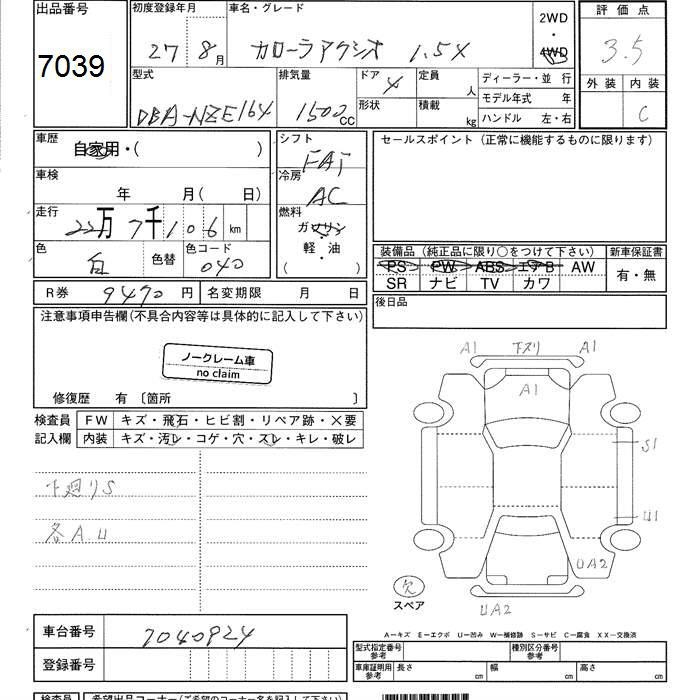 出品番号 初度登録年月 車名・グレード 2WD ・ 4WD 評価点
7039 27 8月 カローラアクシオ 1.5X 3.5
型式 排気量 ドア 4 定員 人 ディーラー・並行 外装 内装
DBA-NZE164 1500cc 形状 積載 kg モデル年式 年 C
ハンドル 左・右
車歴 自家用・( ) シフト FAT セールスポイント (正常に機能するものに限ります)
車検 年 月(日) 冷房 AC
走行 22万7千106km 燃料 ガソリン
軽・油
( )
色 白 色替 色コード 040
装備品 (純正品に限り○をつけて下さい) 新車保証書
PS PW ABS エアB AW 有・無
SR ナビ TV カワ
R券 9470円 名変期限 月 日 後日品
注意事項申告欄(不具合内容等は具体的に記入して下さい)
ノークレーム車
no claim
修復歴 有 〔箇所 〕
検査員 FW キズ・飛石・ヒビ割・リペア跡・X要
記入欄 内装 キズ・汚レ・コゲ・穴・スレ・キレ・破レ
下廻りS
各A.U
A1 下スリ A1
A1
S1
U1
UA2
欠
スペア
UA2
車台番号 7040924
登録番号
A―キズ E―エクボ U―凹み W―補修跡 S―サビ C―腐食 XX―交換済
型式指定番号 参考 種別区分番号 参考
車庫証明用 参考 長さ cm 幅 cm 高さ cm
検査員 希望出品コーナー(ご希望のコーナー名を記入して下さい)